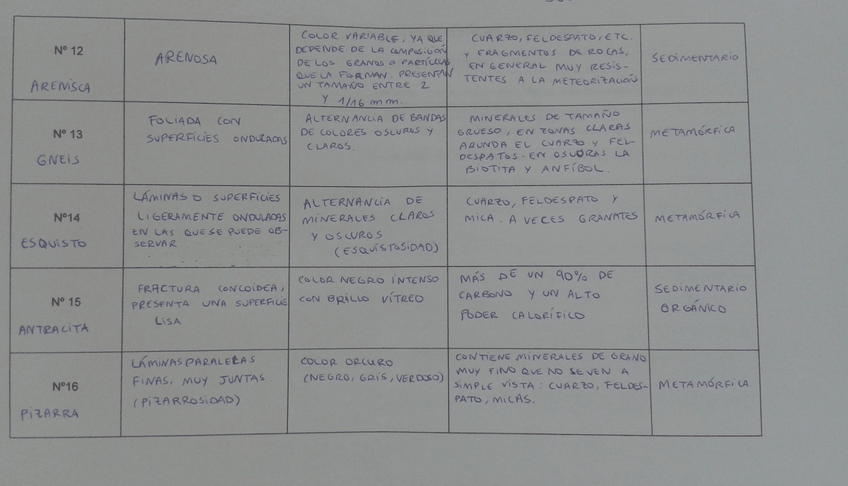 Nº 12
ARENISCA
ARENOSA
COLOR VARIABLE, YA QUE
DEPENDE DE LA COMPOSICIÓN
DE LOS GRANOS O PARTÍCULAS
QUE LA FORMAN. PRESENTAN
UN TAMAÑO ENTRE 2
Y 1/16 mm.
CUARZO, FELDESPATO, ETC.
Y FRAGMENTOS DE ROCAS,
EN GENERAL MUY RESIS-
TENTES A LA METEORIZACIÓN
SEDIMENTARIO
Nº 13
GNEIS
FOLIADA CON
SUPERFICIES ONDULADAS
ALTERNANCIA DE BANDAS
DE COLORES OSCUROS Y
CLAROS.
MINERALES DE TAMAÑO
GRUESO, EN ZONAS CLARAS
ABUNDA EL CUARZO Y FEL-
DESPATOS. EN OSCURAS LA
BIOTITA Y ANFÍBOL.
METAMÓRFICA
Nº14
ESQUISTO
LÁMINAS O SUPERFICIES
LIGERAMENTE ONDULADAS
EN LAS QUE SE PUEDE OB-
SERVAR
ALTERNANCIA DE
MINERALES CLAROS
Y OSCUROS
(ESQUISTOSIDAD)
CUARZO, FELDESPATO Y
MICA. A VECES GRANATES
METAMÓRFICA
Nº 15
ANTRACITA
FRACTURA CONCOIDEA,
PRESENTA UNA SUPERFICIE
LISA
COLOR NEGRO INTENSO
CON BRILLO VÍTREO
MÁS DE UN 90% DE
CARBONO Y UN ALTO
PODER CALORÍFICO
SEDIMENTARIO
ORGÁNICO
Nº16
PIZARRA
LÁMINAS PARALELAS
FINAS, MUY JUNTAS
(PIZARROSIDAD)
COLOR OSCURO
(NEGRO, GRIS, VERDOSO)
CONTIENE MINERALES DE GRANO
MUY FINO QUE NO SE VEN A
SIMPLE VISTA: CUARZO, FELDES-
PATO, MICAS.
METAMÓRFICA